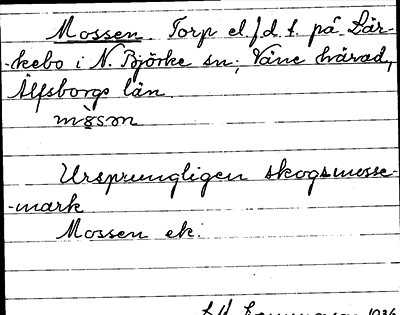 Mossen. Torp el. f.d. t. på Lär-
-kebo i N. Björke sn; Väne härad,
Älfsborgs län.
mo̤sən
Ursprungligen skogsmosse-
-mark
Mossen ek.
1936